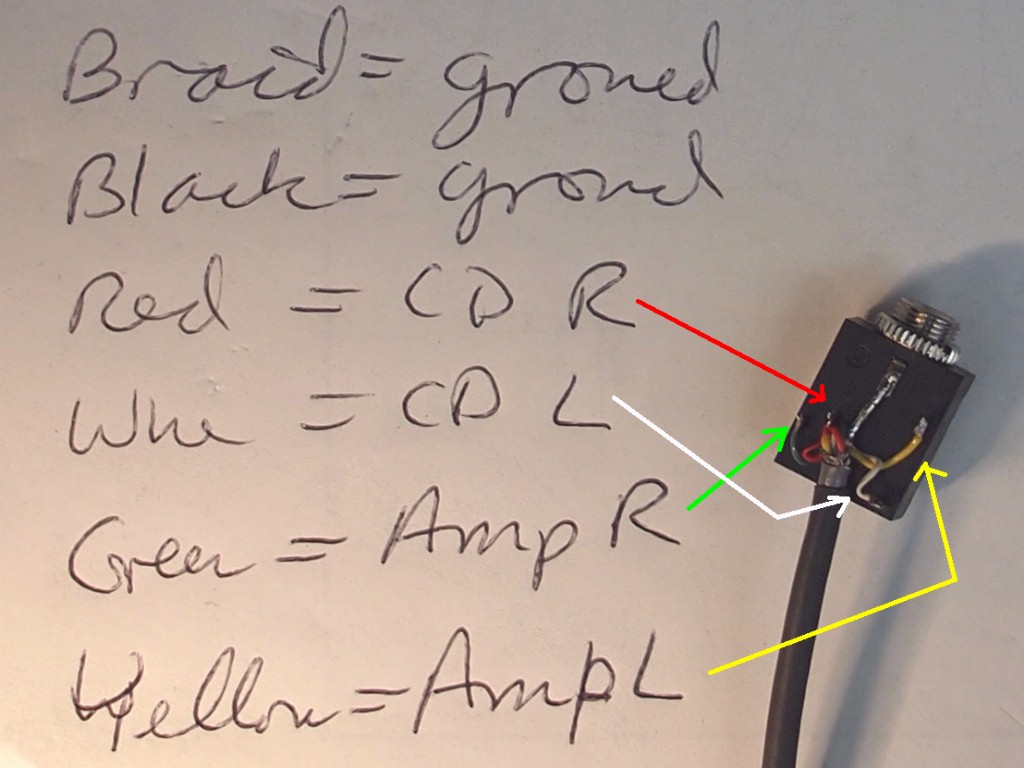 Braid = ground
Black = ground
Red = CD R
Whie = CD L
Green = Amp R
Yellow = Amp L